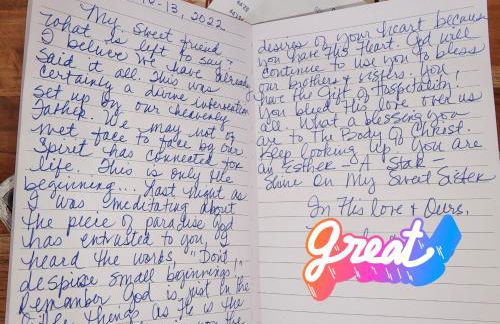 10-13, 2022
My Sweet friend,
what is left to say?
I believe we have already
said it all. This was
certainly a divine intervention
set up by our heavenly
Father. We may not of
met face to face by our
Spirit has connected for
life. This is only the
beginning... Last night as
I was meditating about
the piece of paradise God
has entrusted to you, I
heard the words, "Don't
despise small beginnings",
Remember God is just in the
things as He is the
the
desires of your heart because
you have His Heart. God will
continue to use you to bless
our brothers & sisters. You
have the Gift of Hospitality.
You bleed His love over us
all. What a blessing you
are to the Body of Christ.
Keep looking up. You are
an Esther - A Star -
Shine On My Sweet Sister
In His love & Ours,
great